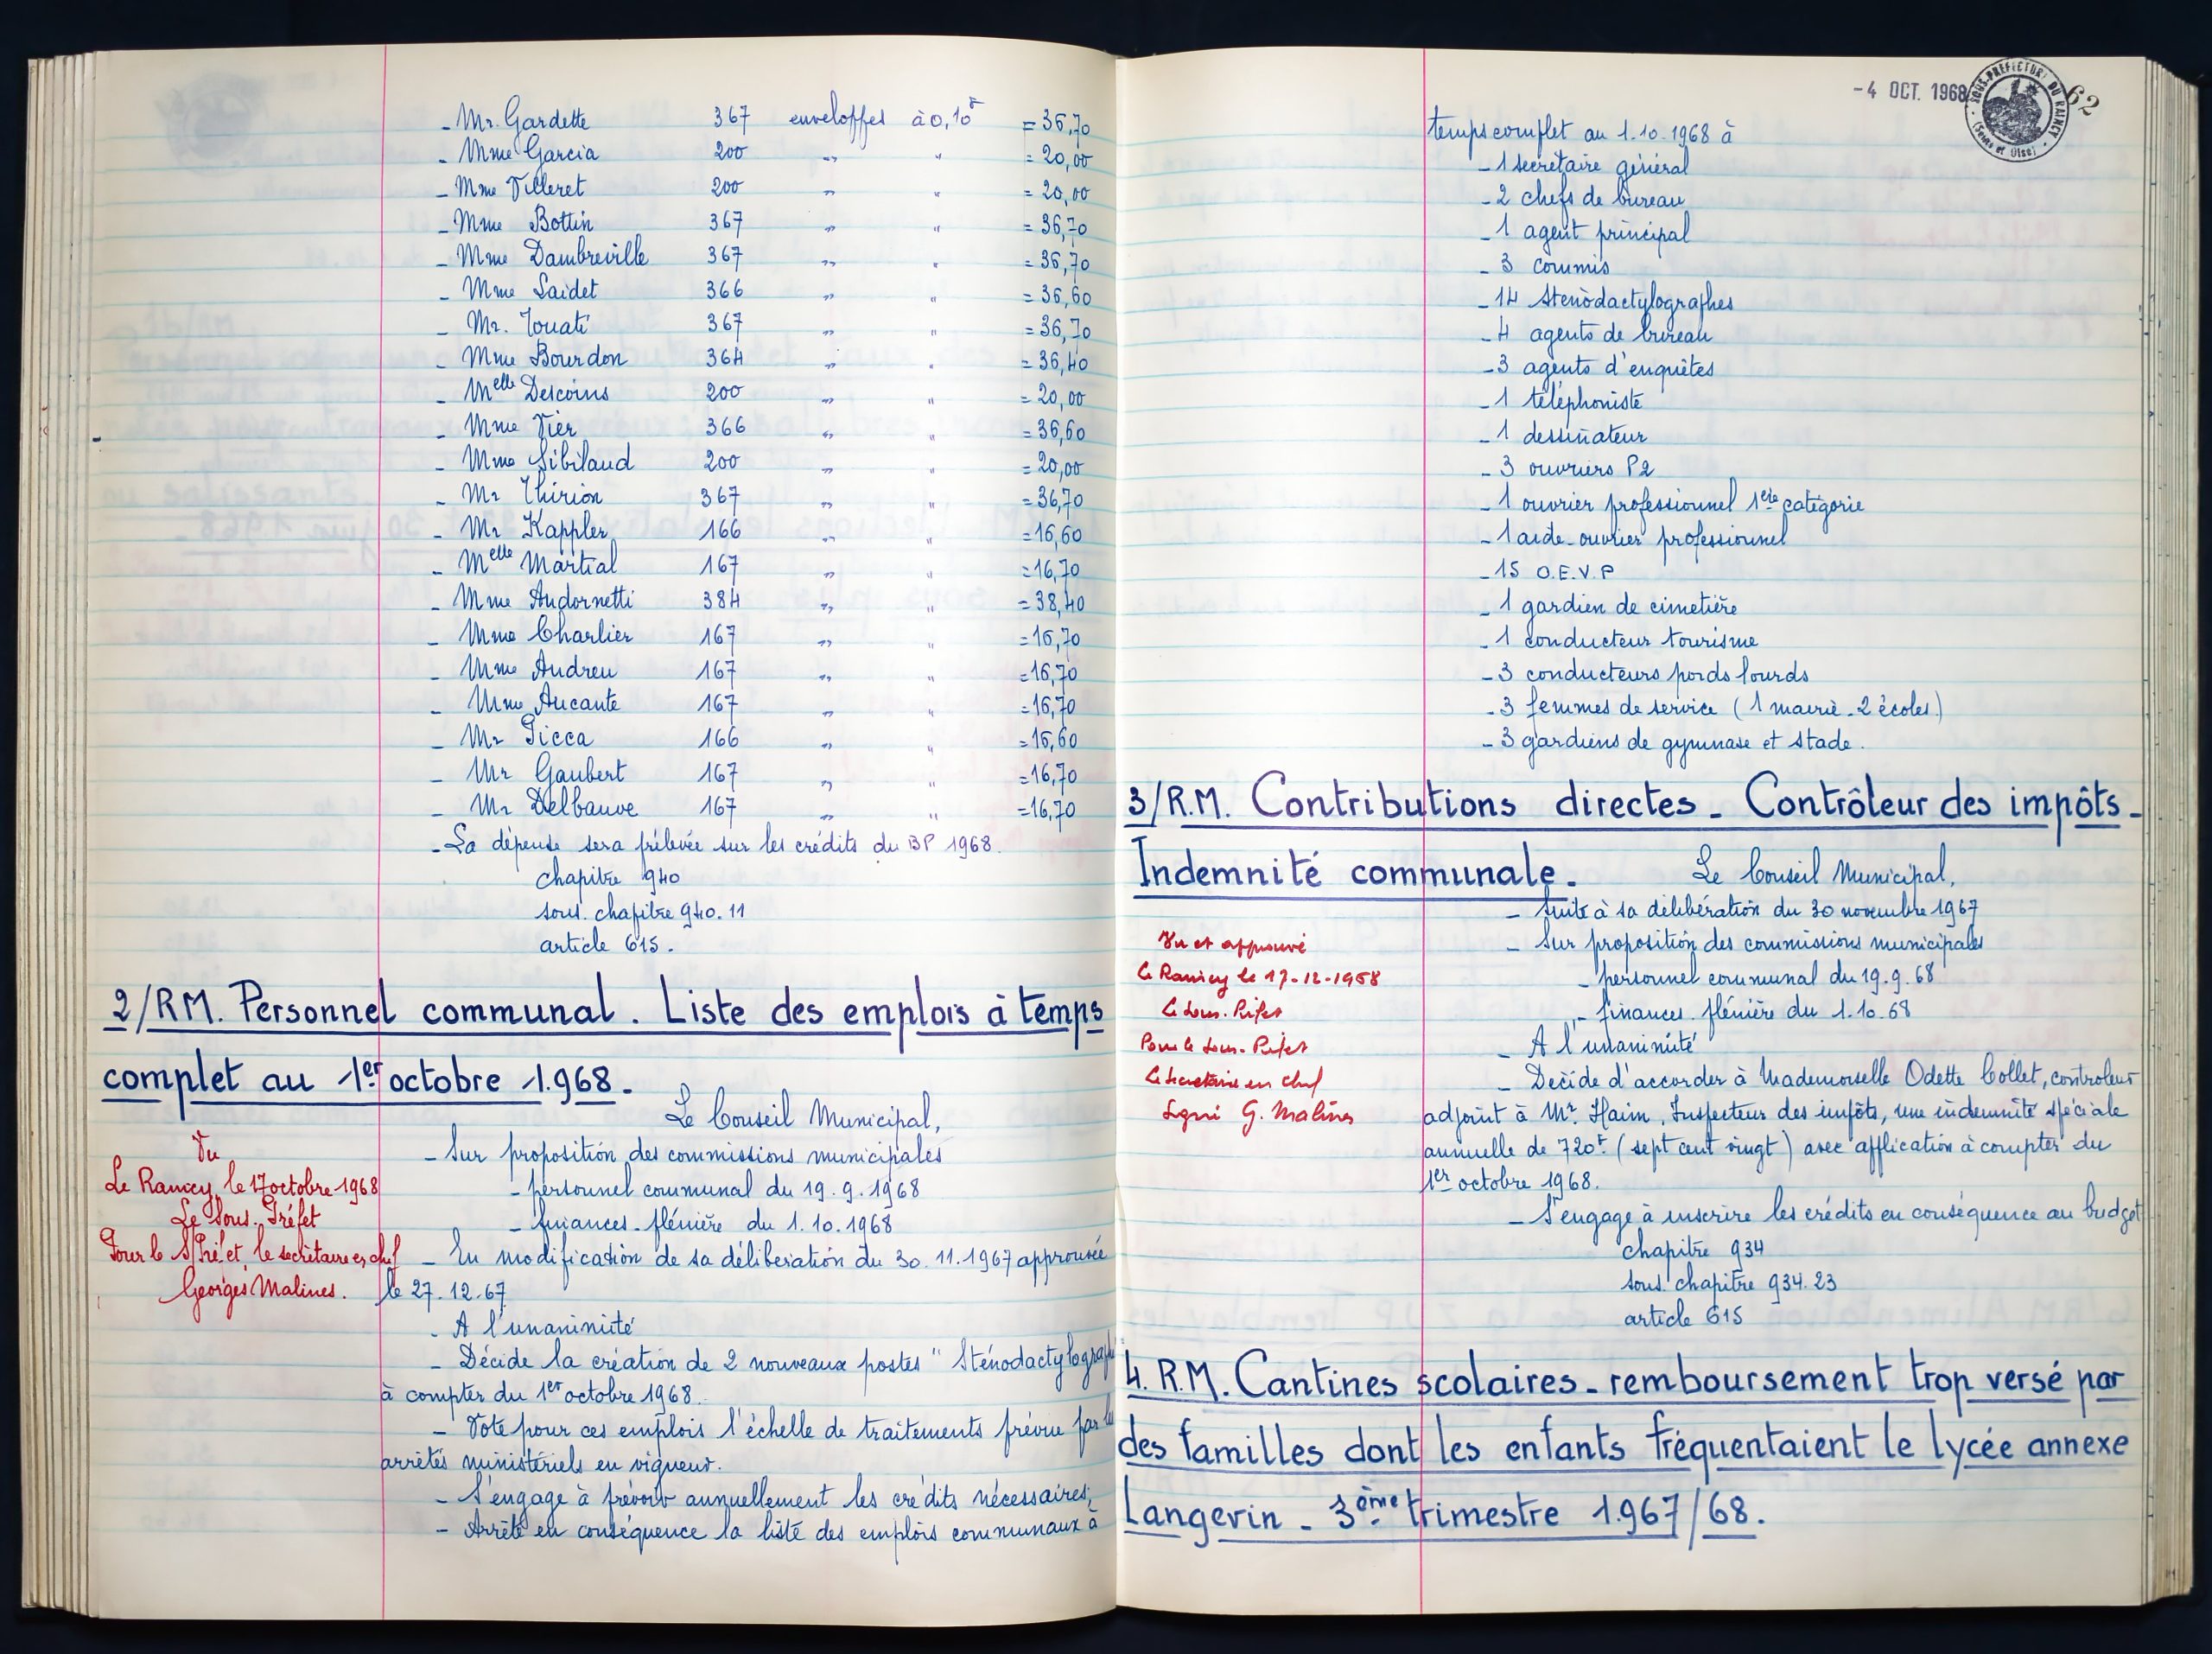 - Mr. Gardette 367 enveloppes à 0,10F = 36,70
- Mme Garcia 200 " " = 20,00
- Mme Villeret 200 " " = 20,00
- Mme Bottin 367 " " = 36,70
- Mme Dambreville 367 " " = 36,70
- Mme Laidet 366 " " = 36,60
- Mr. Touati 367 " " = 36,70
- Mme Bourdon 364 " " = 36,40
- Melle Descoins 200 " " = 20,00
- Mme Vier 366 " " = 36,60
- Mme Sibilaud 200 " " = 20,00
- Mr Thirion 367 " " = 36,70
- Mr Kappler 166 " " = 16,60
- Melle Martial 167 " " = 16,70
- Mme Andornetti 384 " " = 38,40
- Mme Charlier 167 " " = 16,70
- Mme Andreu 167 " " = 16,70
- Mme Aucante 167 " " = 16,70
- Mr Picca 166 " " = 16,60
- Mr Gaubert 167 " " = 16,70
- Mr Delbauve 167 " " = 16,70
- La dépense sera prélevée sur les crédits du BP 1968.
chapitre 940
sous. chapitre 940.11
article 615.
2/R.M. Personnel communal. Liste des emplois à temps
complet au 1er octobre 1.968.
Le Conseil Municipal,
- Sur proposition des commissions municipales
- personnel communal du 19.9.1968
- finances-plénière du 1.10.1968
- En modification de sa délibération du 30.11.1967 approuvée
le 27.12.67
- A l'unanimité
- Décide la création de 2 nouveaux postes "Sténodactylographe
à compter du 1er octobre 1968.
- Vote pour ces emplois l'échelle de traitements prévue par les
arrêtés ministériels en vigueur.
- S'engage à prévoir annuellement les crédits nécessaires,
- Arrête en conséquence la liste des emplois communaux à
Vu
Le Raincy, le 17 octobre 1968
Le Sous. Préfet
Pour le S/Préfet, le secrétaire en chef
Georges Malines.
- 4 OCT. 1968
SOUS-PREFECTURE DU RAINCY
(Seine et Oise)
62
temps complet au 1.10.1968 à
- 1 secrétaire général
- 2 chefs de bureau
- 1 agent principal
- 3 commis
- 14 Sténodactylographes
- 4 agents de bureau
- 3 agents d'enquêtes
- 1 téléphoniste
- 1 dessinateur
- 3 ouvriers P2
- 1 ouvrier professionnel 1ère catégorie
- 1 aide-ouvrier professionnel
- 15 O.E.V.P
- 1 gardien de cimetière
- 1 conducteur tourisme
- 3 conducteurs poids lourds
- 3 femmes de service (1 mairie - 2 écoles)
- 3 gardiens de gymnase et stade.
3/R.M. Contributions directes - Contrôleur des impôts -
Indemnité communale.
Le Conseil Municipal,
- Suite à sa délibération du 30 novembre 1967
- Sur proposition des commissions municipales
- personnel communal du 19.9.68
- finances. plénière du 1.10.68
- A l'unanimité
- Décide d'accorder à Mademoiselle Odette Collet, controleur
adjoint à Mr. Haim, Inspecteur des impôts, une indemnité spéciale
annuelle de 720F (sept cent vingt) avec application à compter du
1er octobre 1968.
- S'engage à inscrire les crédits en conséquence au budget
chapitre 934
sous chapitre 934.23
article 615
Vu et approuvé
Le Raincy le 17-12-1968
Le Sous-Préfet
Pour le Sous-Préfet
Le Secrétaire en chef
Signé G. Malines
4. R.M. Cantines scolaires - remboursement trop versé par
des familles dont les enfants fréquentaient le lycée annexe
Langevin - 3ème trimestre 1.967/68.